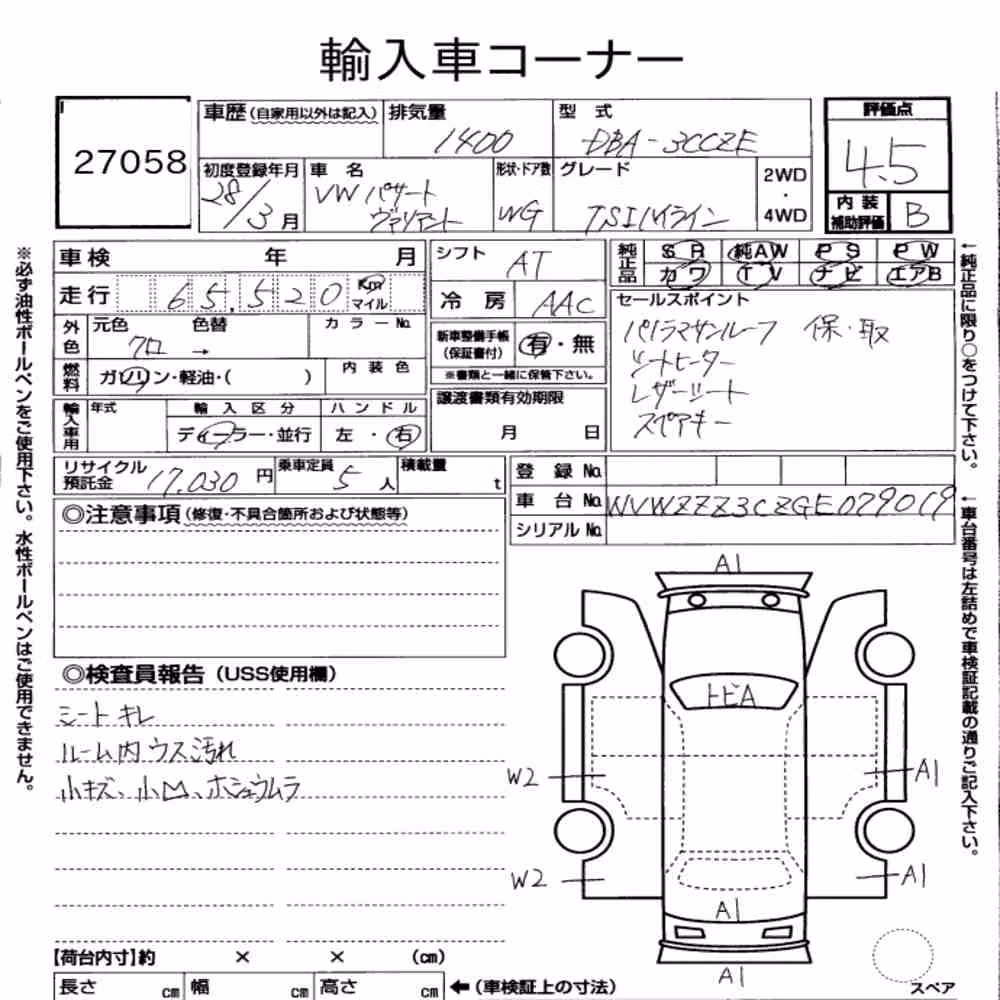 輸入車コーナー
27058
車歴(自家用以外は記入)
排気量
1400
型式
DBA-3CCZE
評価点
4.5
内装
補助評価
B
初度登録年月
28/3月
車名
VW パサート
ヴァリアント
形状・ドア数
WG
グレード
TSIハイライン
2WD
・
4WD
車検 年 月
シフト
AT
純正品
SR 純AW PS PW
カワ TV ナビ エアB
走行
65,520
Km
マイル
冷房
AAC
セールスポイント
パノラマサンルーフ 保・取
シートヒーター
レザーシート
スペアキー
外色
元色 色替
クロ →
カラーNo.
新車整備手帳
(保証書付)
有・無
※書類と一緒に保管下さい。
燃料
ガソリン・軽油・( )
内装色
譲渡書類有効期限
月 日
輸入車用
年式
輸入区分
ディーラー・並行
ハンドル
左・右
リサイクル
預託金
17,030円
乗車定員
5人
積載量
t
登録No.
車台No.
WVWZZZ3CZGE079019
シリアルNo.
◎注意事項(修復・不具合箇所および状態等)
◎検査員報告(USS使用欄)
シートキレ
ルーム内ウス汚れ
小キズ、小凹、ホシュウムラ
A1
トビA
W2
A1
W2
A1
A1
A1
スペア
【荷台内寸】約 × × (cm)
長さ cm 幅 cm 高さ cm ←(車検証上の寸法)
※必ず油性ボールペンをご使用下さい。水性ボールペンはご使用できません。
←純正品に限り○をつけて下さい。
←車台番号は左詰めで車検証記載の通りご記入下さい。